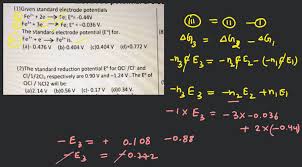 (1)Given standard electrode potentials
Fe²⁺ + 2e → Fe; E°= -0.44V
Fe³⁺ + 3e → Fe; E° = -0.036 V.
The standard electrode potential (E°) for
Fe³⁺ + e → Fe²⁺ is,
(a)- 0.476 V (b)-0.404 V (c)0.404 V (d)+0.772 V
(2)The standard reduction potential E° for
OCl⁻/Cl⁻ and
Cl⁻/1/2Cl₂ respectively are 0.90 V and -1.24 V. The E° of
OCl⁻/Cl₂ will be
(a)2.14 V (b)0.56 V (c)0.17 V (d) 0.34 V.
III = II - I
ΔG₃ = ΔG₂ - ΔG₁
-n₃FE₃ = -n₂FE₂ - (-n₁FE₁)
-n₃E₃ = -n₂E₂ + n₁E₁
-1 × E₃ = -3×-0.036
+ 2×(-0.44)
-E₃ = + 0.108 -0.88
-E₃ = -0.772